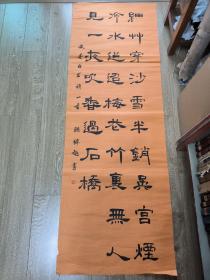 細艸穿沙雪半銷吳宮煙
冷水迢迢梅花竹裏無人
見一夜吹香過石橋
一首
書